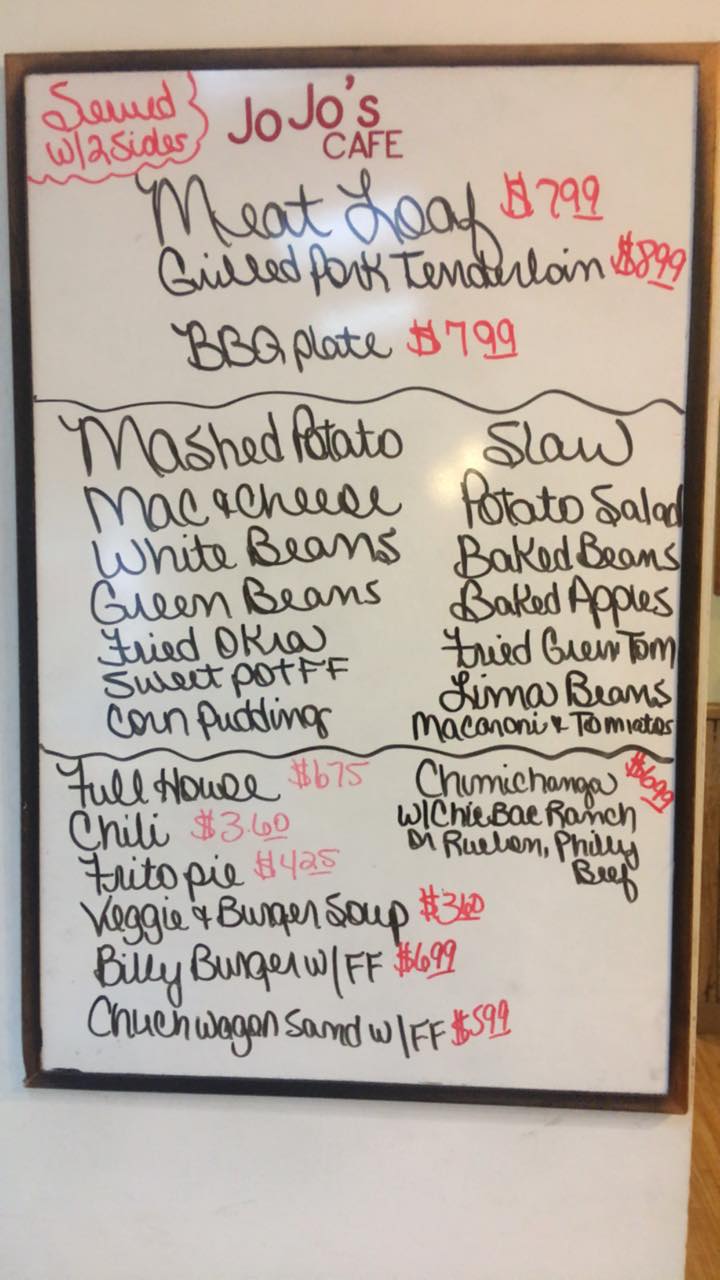 Served
W/2 Sides
JoJo's
CAFE
Meat Loaf $799
Grilled Pork Tenderloin $899
BBQ plate $799
Mashed Potato
Mac & Cheese
White Beans
Green Beans
Fried Okra
Sweet pot FF
Corn Pudding
Slaw
Potato Salad
Baked Beans
Baked Apples
Fried Green Tom
Lima Beans
Macaroni & Tomatos
Full House $675
Chili $3.60
Frito pie $425
Veggie & Burger Soup $360
Billy Burger w/FF $699
Chuckwagon Sand w/FF $599
Chimichanga $699
W/Chic Bac Ranch
or Rueben, Philly
Beef